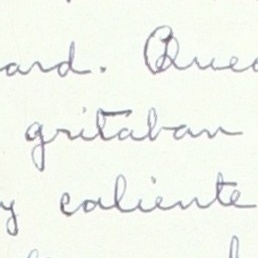 ard. Qued
gritaban
y caliente